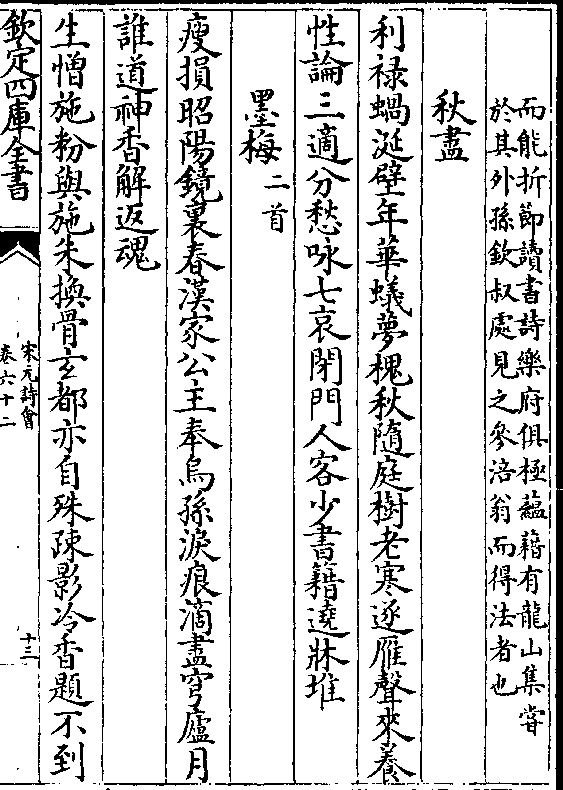 而能折節讀書詩樂府俱極蘊藉有龍山集嘗
於其外孫欽叔處見之參涪翁而得法者也
秋盡
利禄蝸涎壁年華蟻夢槐秋隨庭樹老寒逐雁聲來養
性論三適分愁咏七哀閉門人客少書籍遶牀堆
墨梅二首
瘦損昭陽鏡裏春漢家公主奉烏孫淚痕滴盡穹廬月
誰道神香解返魂
生憎施粉與施朱換骨玄都亦自殊疎影冷香題不到
欽定四庫全書
宋元詩會
卷六十二
十三